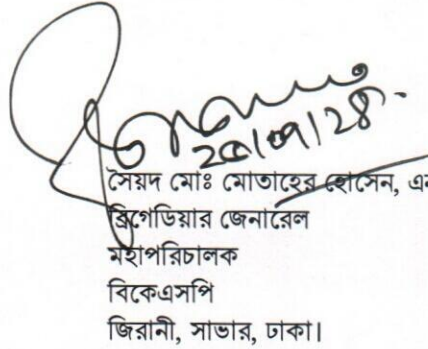 সৈয়দ মোঃ মোতাহের হোসেন,
ব্রিগেডিয়ার জেনারেল
মহাপরিচালক
বিকেএসপি
জিরানী, সাভার, ঢাকা।